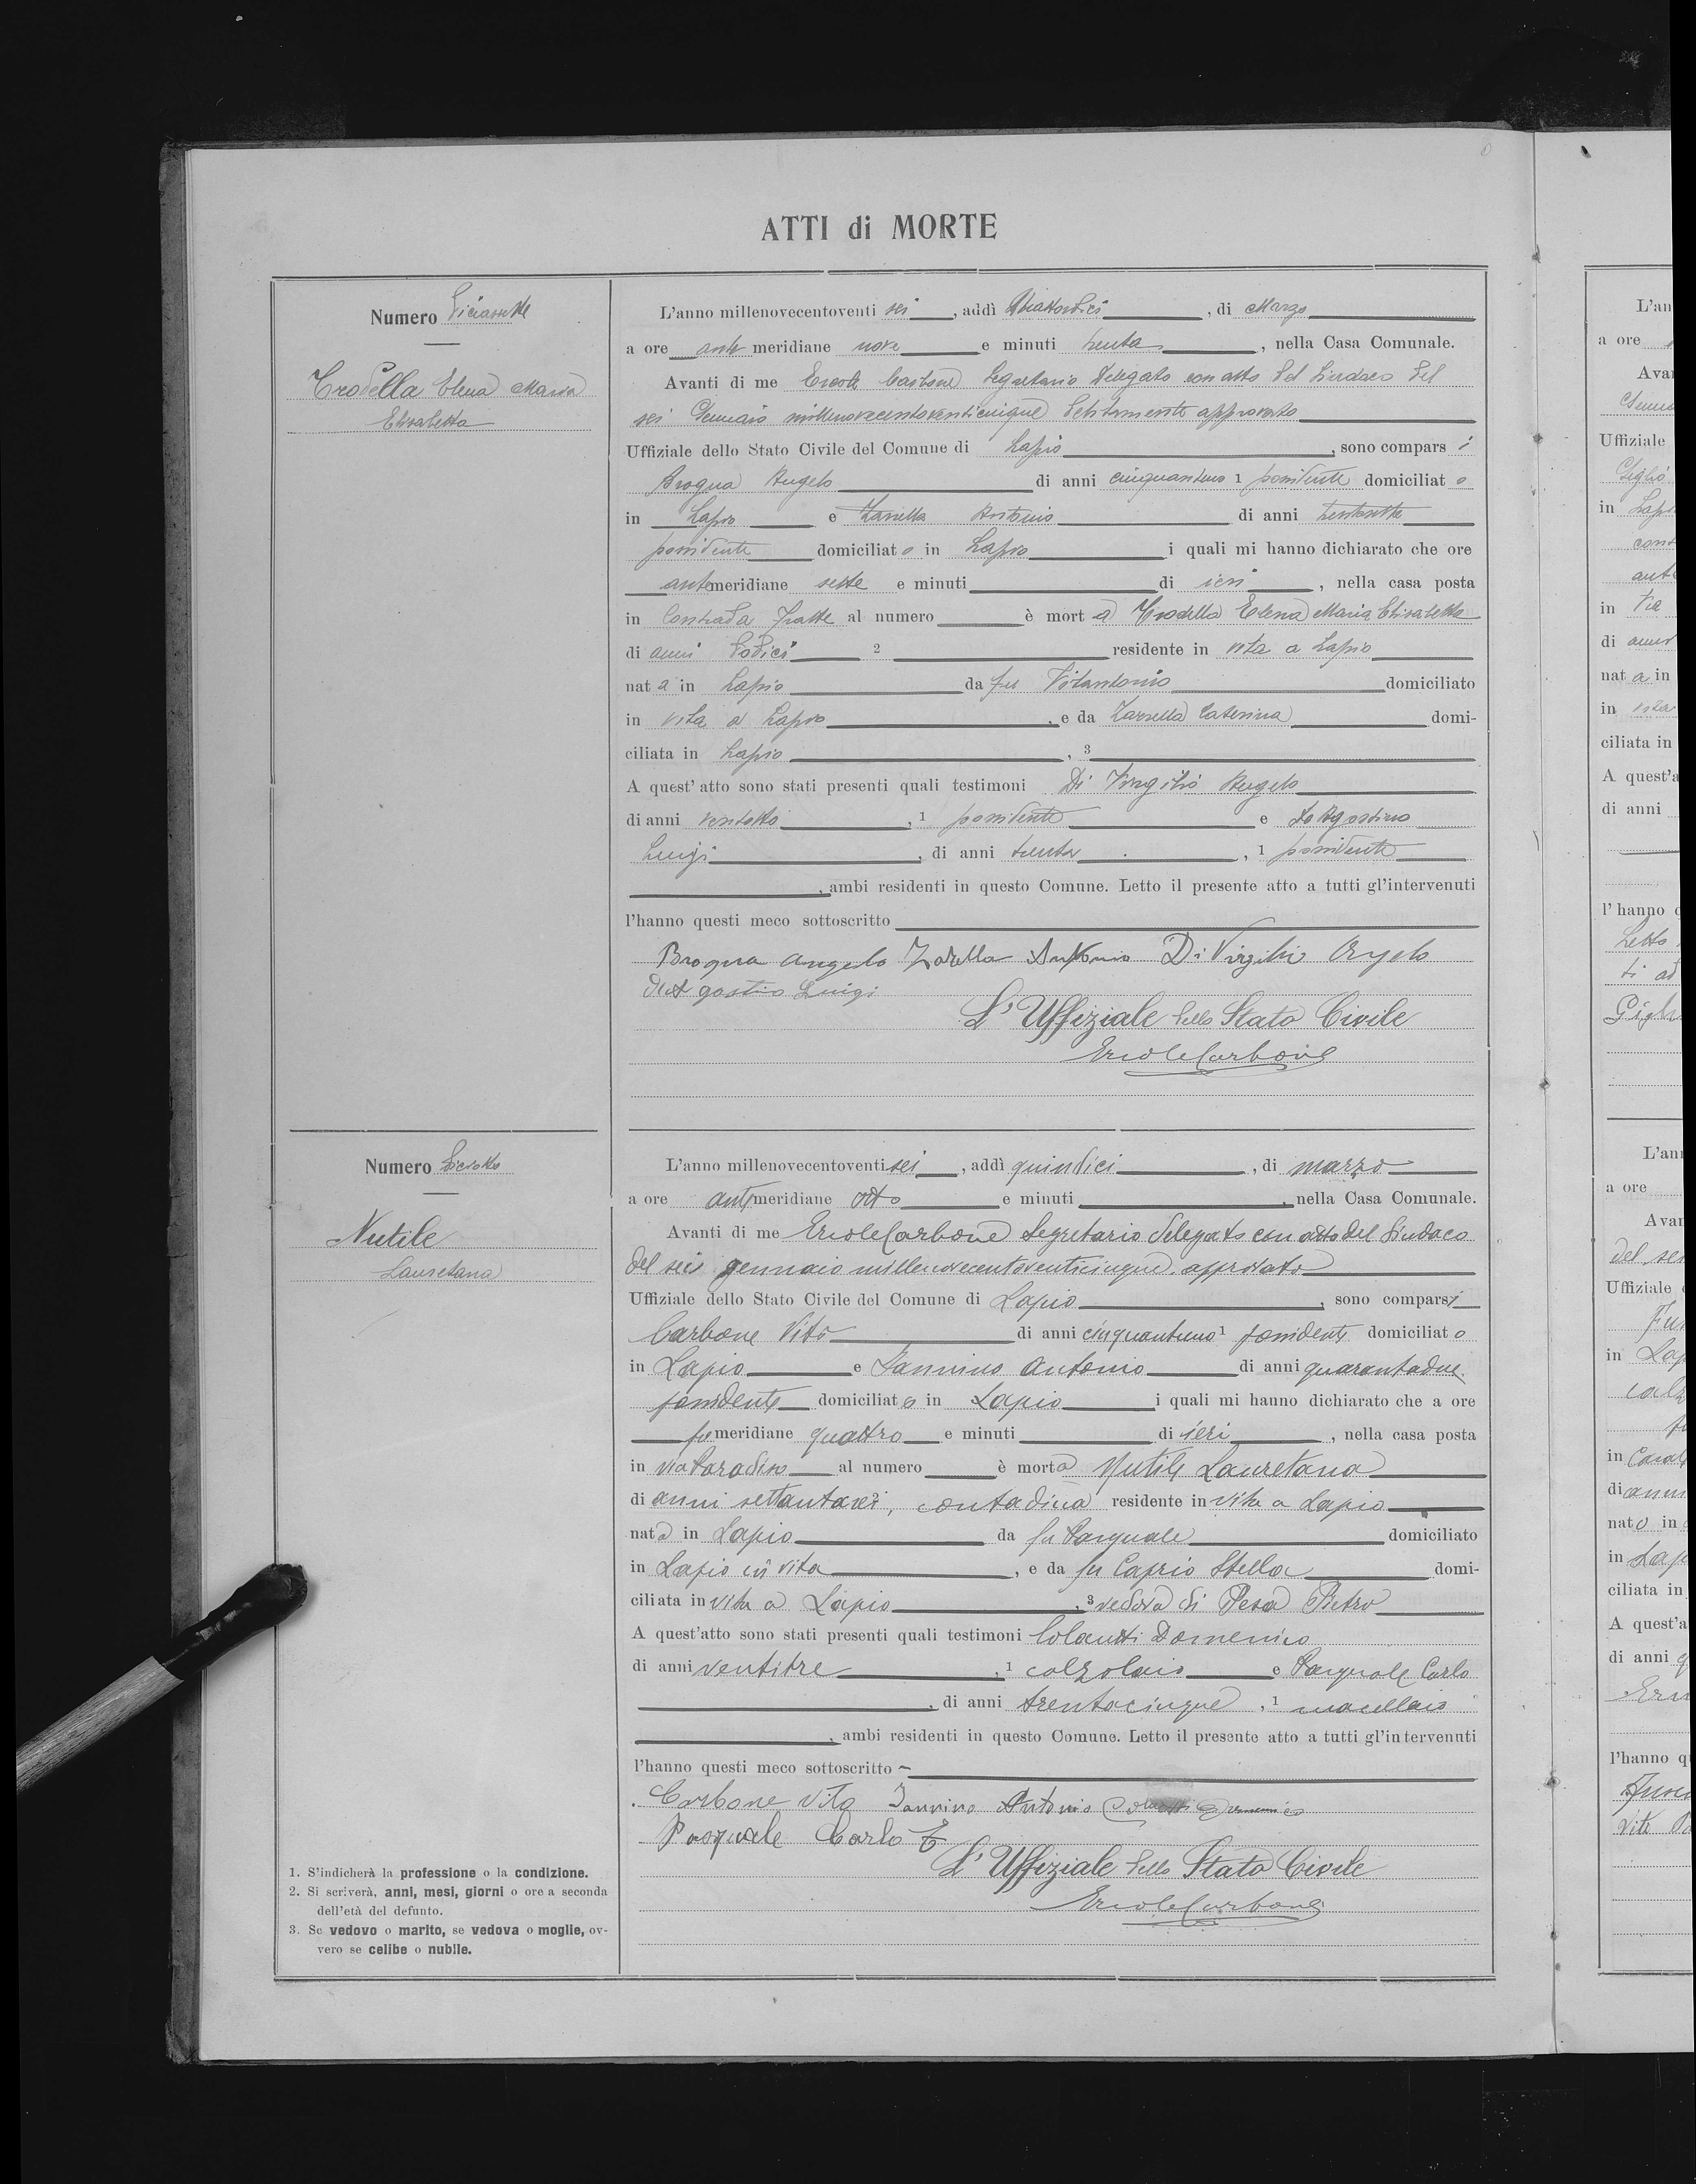 ATTI di MORTE
Numero Diciassette
Trodella Elena Maria
Elisabetta
L'anno millenovecentoventi sei, addì Quattordici, di Marzo
a ore antimeridiane nove e minuti trenta, nella Casa Comunale.
Avanti di me Ercole Carbone Segretario Delegato con atto del Sindaco del
sei Gennaio millenovecentoventicinque debitamente approvato
Uffiziale dello Stato Civile del Comune di Lapio, sono comparsi
Brogna Angelo di anni cinquantuno 1 possidente domiciliato
in Lapio e Zarrella Antonio di anni trentasette
possidente domiciliato in Lapio i quali mi hanno dichiarato che ore
antemeridiane sette e minuti di ieri, nella casa posta
in Contrada Fratte al numero è morta Trodella Elena Maria Elisabetta
di anni dodici 2 residente in vita a Lapio
nata in Lapio da fu Vitantonio domiciliato
in vita a Lapio, e da Zarrella Caterina domi-
ciliata in Lapio, 3
A quest'atto sono stati presenti quali testimoni Di Virgilio Angelo
di anni ventotto, 1 possidente e D'Agostino
Luigi, di anni trenta, 1 possidente
, ambi residenti in questo Comune. Letto il presente atto a tutti gl'intervenuti
l'hanno questi meco sottoscritto
Brogna Angelo Zarella Antonio Di Virgilio Angelo
Luigi
L'Uffiziale dello Stato Civile
Ercole Carbone
Numero Diciotto
Nutile
Lauretana
L'anno millenovecentoventi sei, addì quindici, di marzo
a ore antimeridiane otto e minuti, nella Casa Comunale.
Avanti di me Ercole Carbone Segretario delegato con atto del Sindaco
del sei gennaio millenovecentoventicinque approvato
Uffiziale dello Stato Civile del Comune di Lapio, sono comparsi
Carbone Vito di anni cinquantuno 1 possidente domiciliato
in Lapio e Iannino Antonio di anni quarantadue
possidente domiciliato in Lapio i quali mi hanno dichiarato che a ore
pomeridiane quattro e minuti di ieri, nella casa posta
in via Paradiso al numero è morta Nutile Lauretana
di anni settantasei 2, contadina residente in vita a Lapio
nata in Lapio da fu Pasquale domiciliato
in Lapio in vita, e da fu Caprio Stella domi-
ciliata in vita a Lapio, 3 vedova di Pesa Pietro
A quest'atto sono stati presenti quali testimoni Colantti Domenico
di anni ventitre, 1 calzolaio e Pasquale Carlo
, di anni trentacinque, 1 macellaio
, ambi residenti in questo Comune. Letto il presente atto a tutti gl'intervenuti
l'hanno questi meco sottoscritto
Carbone Vito Iannino Antonio Domenico
Pasquale Carlo
L'Uffiziale dello Stato Civile
Ercole Carbone
1. S'indicherà la professione o la condizione.
2. Si scriverà, anni, mesi, giorni o ore a seconda
dell'età del defunto.
3. Se vedovo o marito, se vedova o moglie, ov-
vero se celibe o nubile.
L'an
a ore
Ava
Uffiziale
in Lapi
in Via
nata in
in vita
ciliata in
A quest'a
di anni
l'hanno q
L'an
a ore
Avan
del sei
Uffiziale
in Lap
in
di anni
nato in
in Lap
ciliata in
A quest'a
di anni
l'hanno q